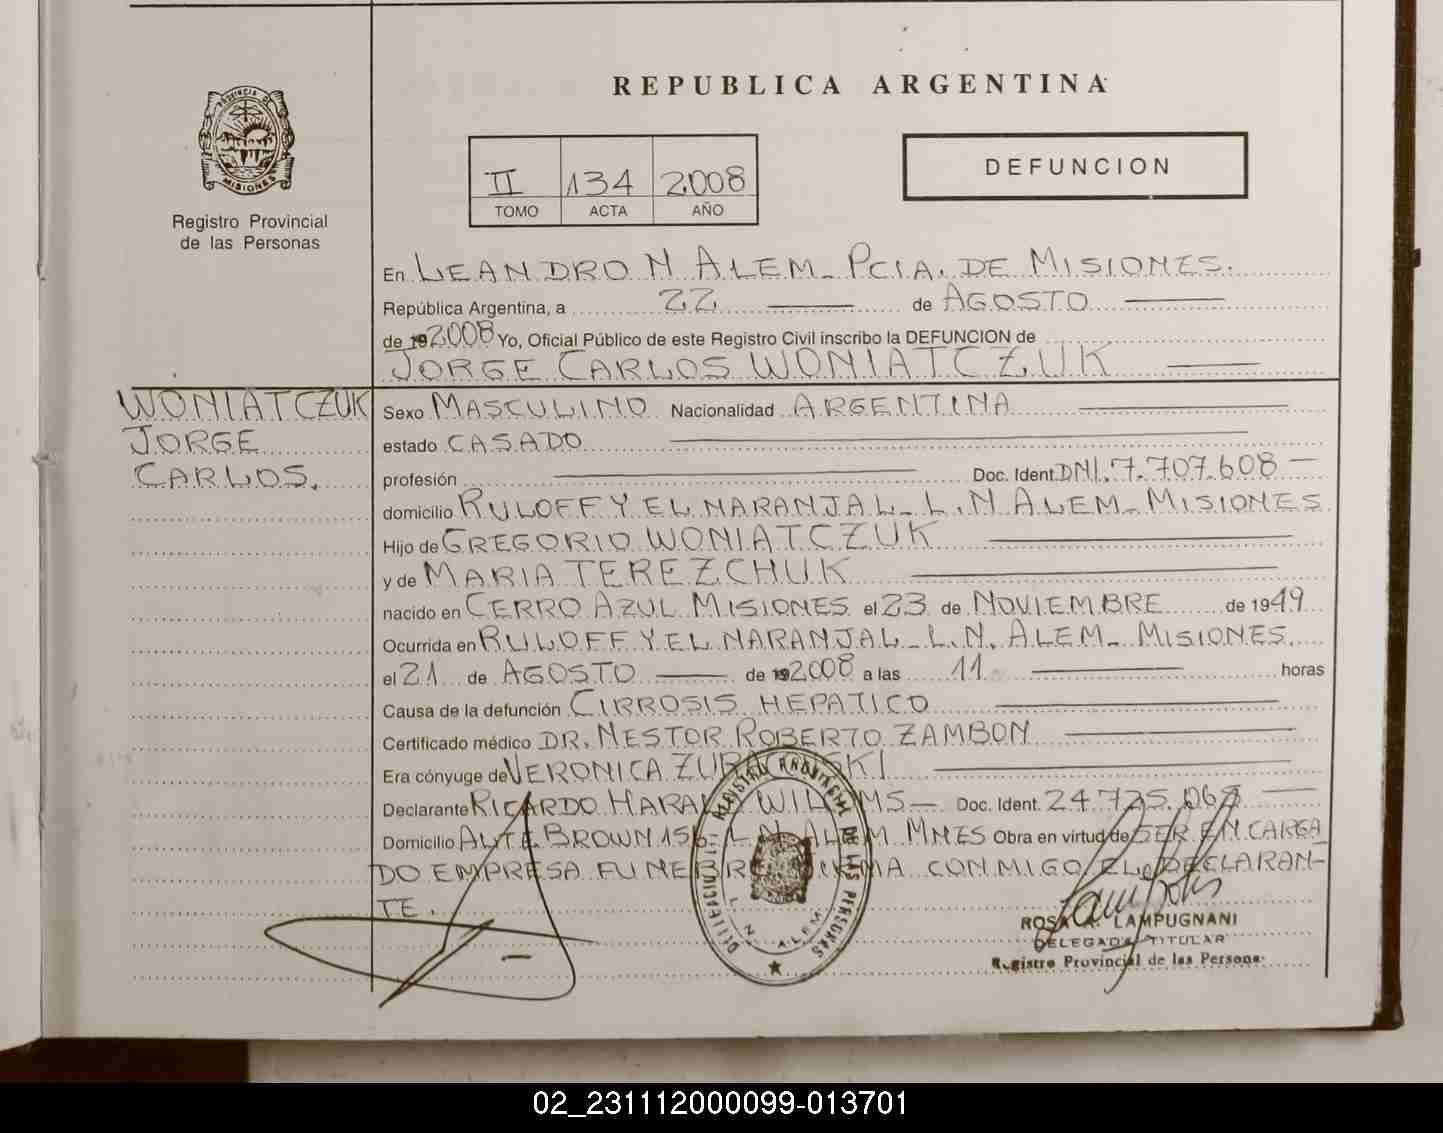 REPUBLICA ARGENTINA
PROVINCIA DE
MISIONES
Registro Provincial
de las Personas
II 134 2008
TOMO ACTA AÑO
DEFUNCION
En LEANDRO N ALEM - PCIA. DE MISIONES.
República Argentina, a 22 de AGOSTO
de 19 2008 Yo, Oficial Público de este Registro Civil inscribo la DEFUNCION de
JORGE CARLOS WONIATCZUK
WONIATCZUK
JORGE
CARLOS.
Sexo MASCULINO Nacionalidad ARGENTINA
estado CASADO
profesión Doc. Ident. DNI. 7.707.608 —
domicilio RULOFF Y EL NARANJAL - L. N ALEM - MISIONES
Hijo de GREGORIO WONIATCZUK
y de MARIA TEREZCHUK
nacido en CERRO AZUL MISIONES el 23 de NOVIEMBRE de 1949
Ocurrida en RULOFF Y EL NARANJAL - L. N. ALEM - MISIONES
el 21 de AGOSTO de 19 2008 a las 11 horas
Causa de la defunción CIRROSIS HEPATICO
Certificado médico DR. NESTOR ROBERTO ZAMBON
Era cónyuge de VERONICA
Declarante RICARDO Doc. Ident. 24.725.
Domicilio ALTE BROWN 156 L. N. ALEM MNES Obra en virtud de SER ENCARGA
DO EMPRESA FUNEBRE FIRMA CONMIGO EL DECLARAN-
TE.
REGISTRO PROVINCIAL DE LAS PERSONAS
L. N. ALEM
ROSA A. LAMPUGNANI
DELEGADA TITULAR
Registro Provincial de las Personas
02_231112000099-013701